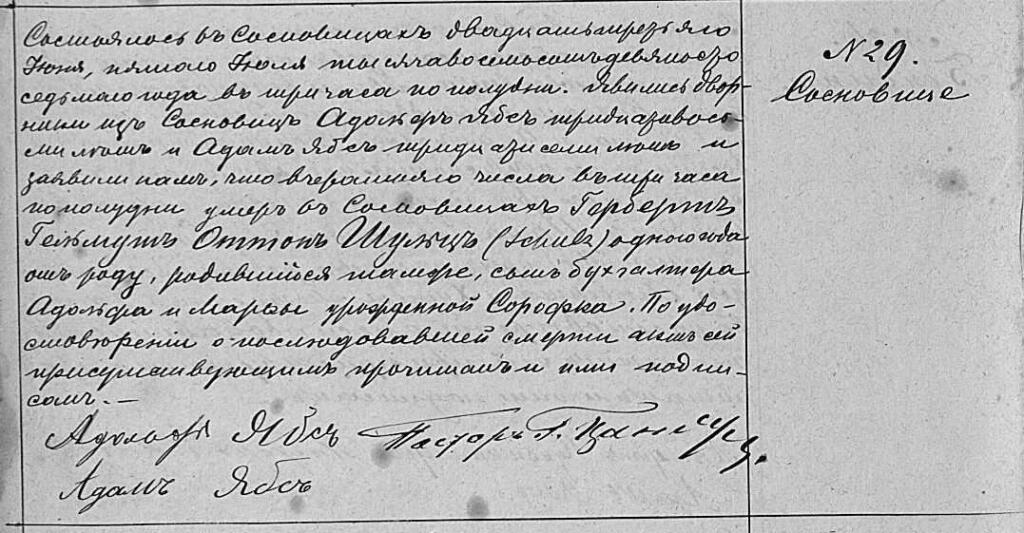 Состоялось въ Сосновицахъ двадцать третьяго
Іюня, пятаго Іюля тысяча восемьсотъ девяносто
седьмаго года въ три часа по полудни. Явились двор-
ники изъ Сосновицъ Адольфъ Ябсъ тридцати вось-
ми лѣтъ и Адамъ Ябсъ тридцати семи лѣтъ и
заявили намъ, что вчерашняго числа въ три часа
по полудни умеръ въ Сосновицахъ Гербертъ
Гельмутъ Оттонъ Шульцъ (Schulz) одного года
отъ роду, родившійся тамже, сынъ бухгалтера
Адольфа и Марьи урожденной Сорофка. По удо-
стовѣреніи о послѣдовавшей смерти актъ сей
присутствующимъ прочитанъ и ими подпи-
санъ. —
Адольфъ Ябсъ Пасторъ Г.
Адамъ Ябсъ
N 29.
Сосновице